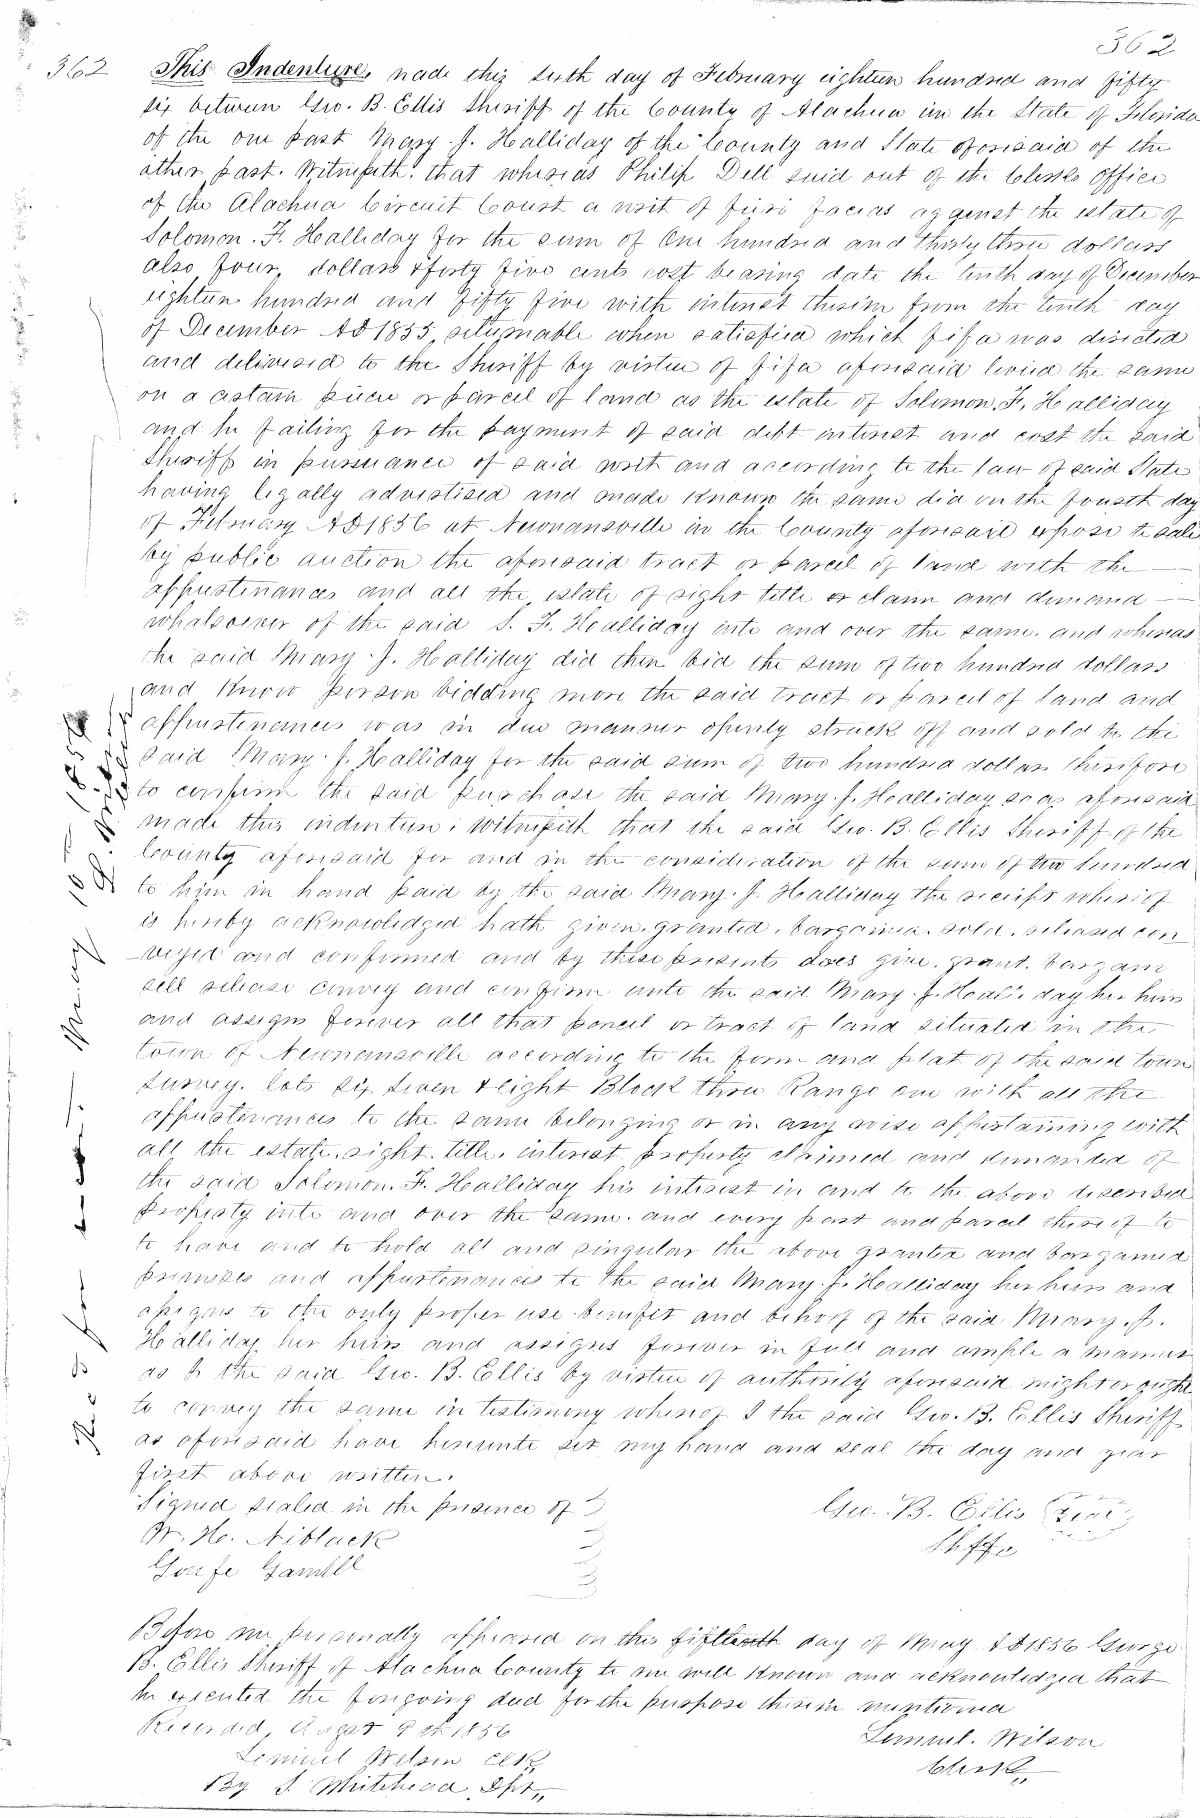 362
362 This Indenture, made this sixth day of February eighteen hundred and fifty
six between Geo. B. Ellis Sheriff of the County of Alachua in the State of Florida
of the one part Mary J. Halliday of the County and State aforesaid of the
other part. Witnesseth. that whereas Philip Dell suid out of the Clerks office
of the Alachua Circuit Court a writ of fieri facias against the estate of
Solomon. F. Halliday for the sum of One hundred and thirty three dollars
also four, dollars & forty five cents cost bearing date the tenth day of December
eighteen hundred and fifty five with interest therein from the tenth day
of December AD 1855, returnable when satisfied which fifa was directed
and delivered to the Sheriff by virtue of fifa aforesaid levied the same
on a certain piece or parcel of land as the estate of Solomon, F, Halliday
and he failing for the payment of said debt interest and cost the said
Sheriff in pursuance of said writ and according to the law of said State
having legally advertised and made known the same did on the fourth day
of February AD 1856 at Newnansville in the County aforesaid expose to sale
by public auction the aforesaid tract or parcel of land with the
appurtenances and all the estate of right title or claim and demand
whatsoever of the said S. F. Halliday into and over the same. and whereas
the said Mary J. Halliday did then bid the sum of two hundred dollars
and know person bidding more the said tract or parcel of land and
appurtenances was in due manner openly struck off and sold to the
said Mary. J. Halliday for the said sum of two hundred dollars therefore
to confirm the said purchase the said Mary. J. Halliday so as aforesaid
made this indenture. Witnesseth that the said Geo. B. Ellis Sheriff of the
County aforesaid for and in the consideration of the sum of two hundred
to him in hand paid by the said Mary. J. Halliday the receipt whereof
is hereby acknowledged hath given. granted. bargained. sold. released con
veyed and confirmed and by these presents does give. grant. bargain
sell release convey and confirm unto the said Mary. J. Halliday her heirs
and assigns forever all that parcel or tract of land situated in the
town of Newnansville according to the form and plat of the said town
survey. lots six, seven & eight Block three Range one with all the
appurtenances to the same belonging or in any wise appertaining with
all the estate. right. title. interest property claimed and demanded of
the said Solomon. F. Halliday his interest in and to the above described
property into and over the same. and every part and parcel thereof to
to have and to hold all and singular the above granted and bargained
premises and appurtenances to the said Mary. J. Halliday her heirs and
assigns to the only proper use benefit and behoof of the said Mary. J.
Halliday her heirs and assigns forever in full and ample a manner
as to the said Geo. B. Ellis by virtue of authority aforesaid might or ought
to convey the same in testimony whereof I the said Geo. B. Ellis Sheriff
as aforesaid have hereunto set my hand and seal the day and year
first above written.
Signed sealed in the presence of
Geo. B. Ellis Seal
W. H. Niblack
Shffa
Before me personally appeared on this fifteenth day of May AD 1856 George
B. Ellis Sheriff of Alachua County to me well known and acknowledged that
he executed the foregoing deed for the purpose therein mentioned
Recorded, Augst 9th 1856
Lemuel. Wilson
Clerk,,
Lemuel Wilson Clk,
By S. Whitehead Dpt,,
Recd for May 10th 1856